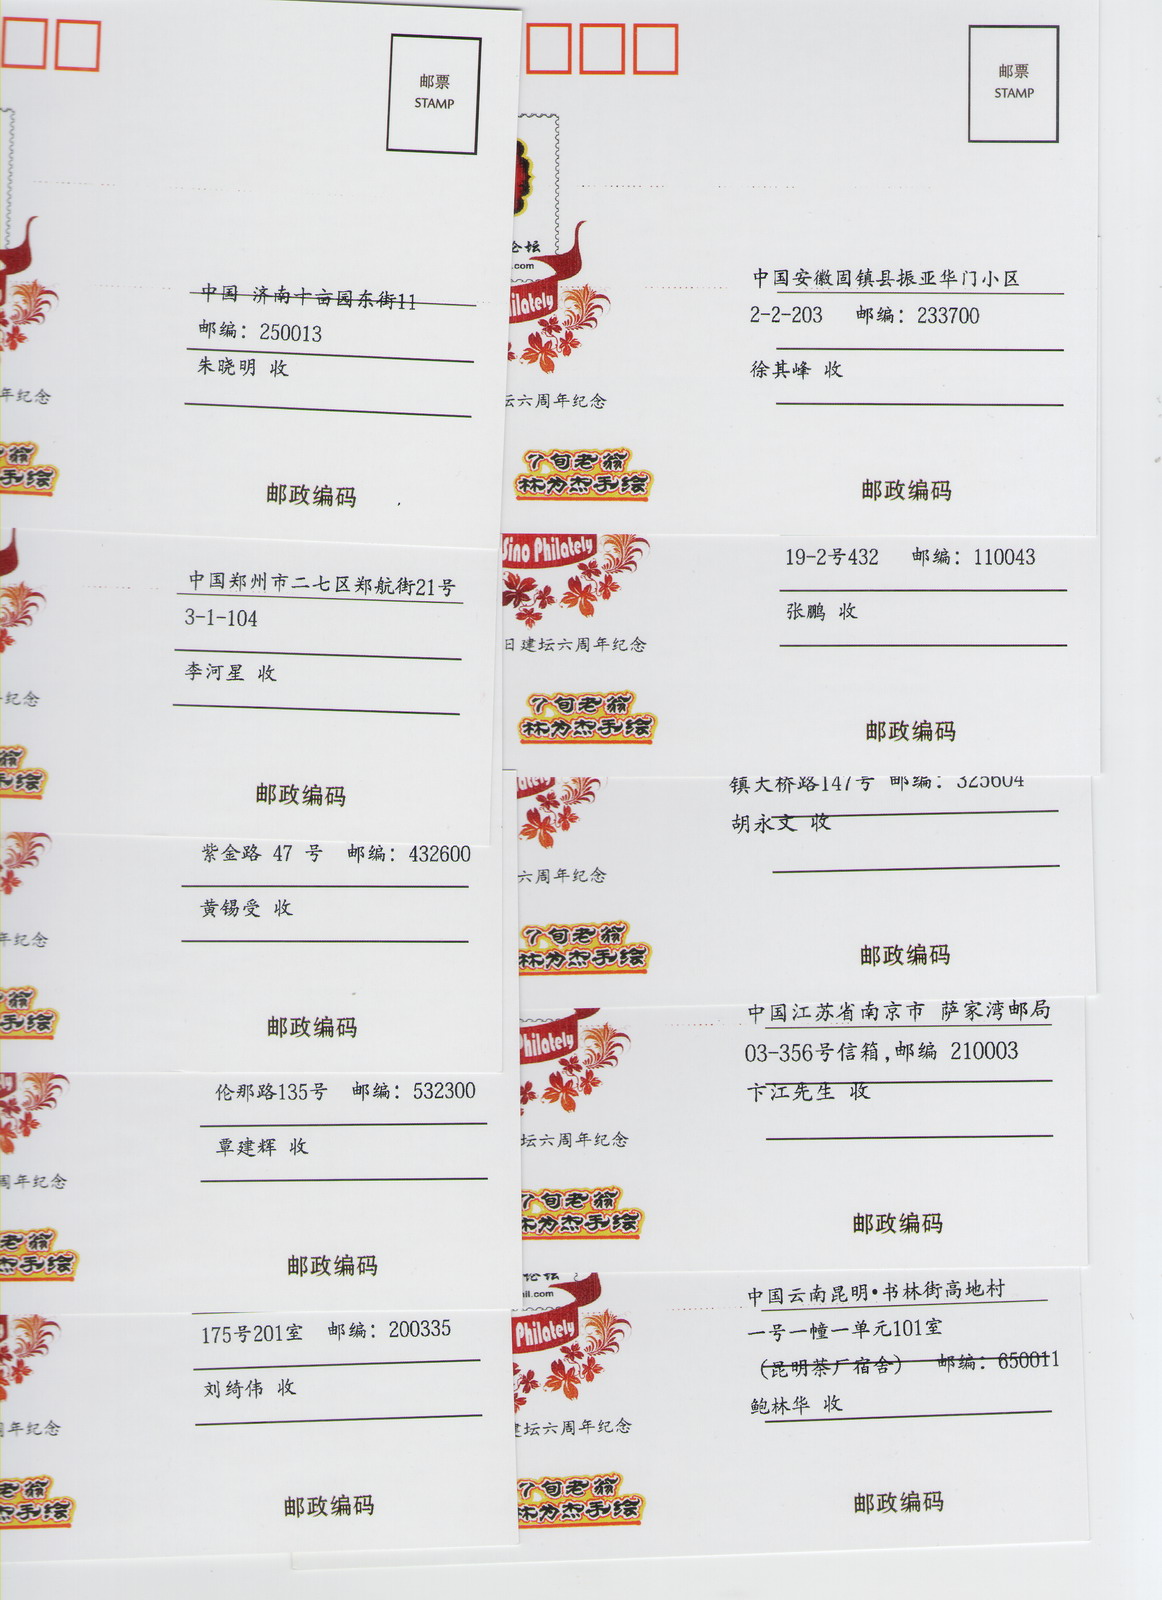 邮票
STAMP
中国 济南十亩园东街11
邮编: 250013
朱晓明 收
年纪念
手绘
邮政编码
中国郑州市二七区郑航街21号
3-1-104
李河星 收
纪念
手绘
邮政编码
紫金路 47 号 邮编: 432600
黄锡受 收
年纪念
手绘
邮政编码
伦那路135号 邮编: 532300
覃建辉 收
周年纪念
老翁
杰手绘
邮政编码
175号201室 邮编: 200335
刘绮伟 收
周年纪念
老翁
杰手绘
邮政编码
邮票
STAMP
论坛
.com
Philately
中国安徽固镇县振亚华门小区
2-2-203 邮编: 233700
徐其峰 收
坛六周年纪念
7旬老翁
林为杰手绘
邮政编码
Sino Philately
19-2号432 邮编: 110043
张鹏 收
日建坛六周年纪念
7旬老翁
林为杰手绘
邮政编码
镇大桥路147号 邮编: 325604
胡永文 收
六周年纪念
7旬老翁
林为杰手绘
邮政编码
Philately
中国江苏省南京市 萨家湾邮局
03-356号信箱,邮编 210003
卞江先生 收
坛六周年纪念
7旬老翁
林为杰手绘
邮政编码
论坛
ll.com
Philately
中国云南昆明•书林街高地村
一号一幢一单元101室
(昆明茶厂宿舍) 邮编: 650011
鲍林华 收
建坛六周年纪念
7旬老翁
林为杰手绘
邮政编码